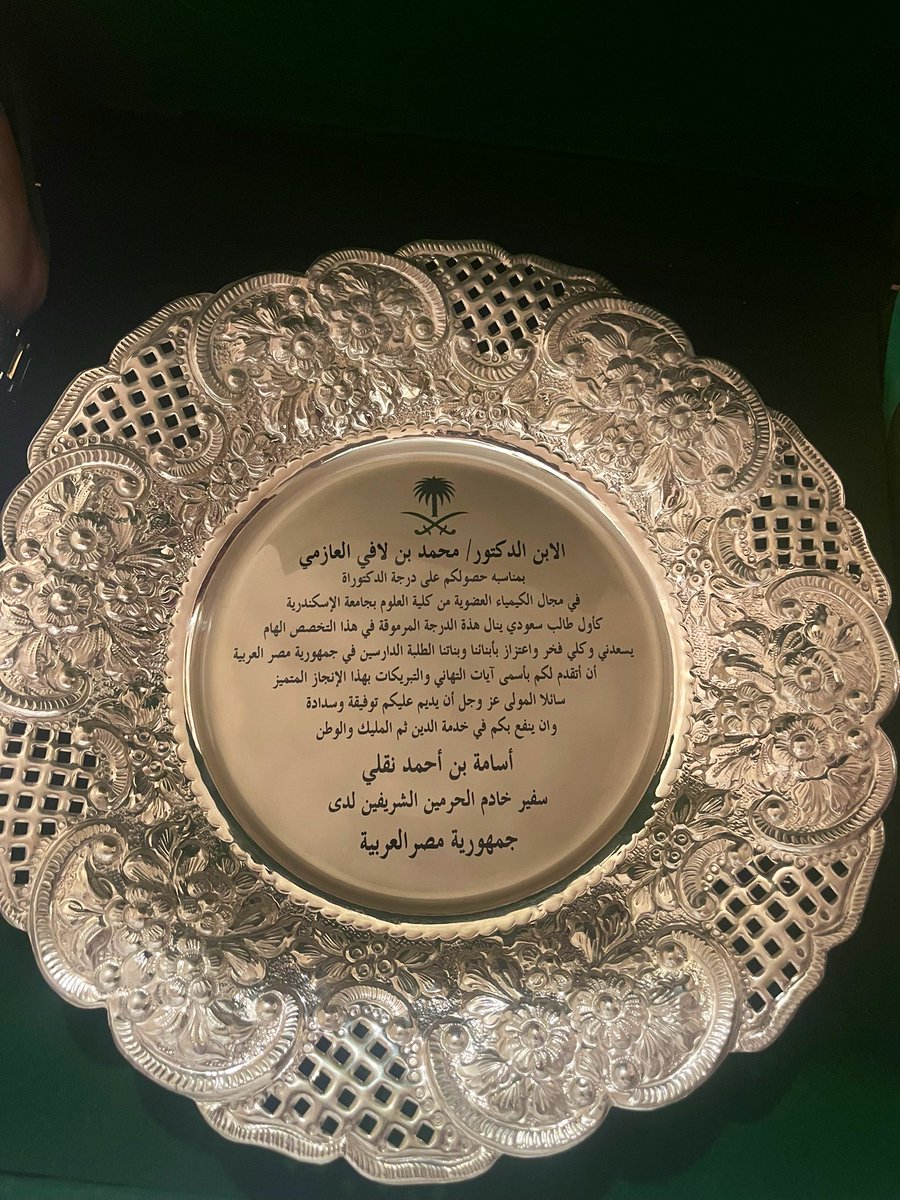 الابن الدكتور/ محمد بن لافي العازمي
بمناسبه حصولكم على درجة الدكتوراة
في مجال الكيمياء العضوية من كلية العلوم بجامعة الإسكندرية
كأول طالب سعودي ينال هذة الدرجة المرموقة في هذا التخصص الهام
يسعدني وكلي فخر واعتزاز بأبنائنا وبناتنا الطلبة الدارسين في جمهورية مصر العربية
أن أتقدم لكم بأسمى آيات التهاني والتبريكات بهذا الإنجاز المتميز
سائلا المولى عز وجل أن يديم عليكم توفيقة وسدادة
وان ينفع بكم في خدمة الدين ثم المليك والوطن
أسامة بن أحمد نقلي
سفير خادم الحرمين الشريفين لدى
جمهورية مصر العربية